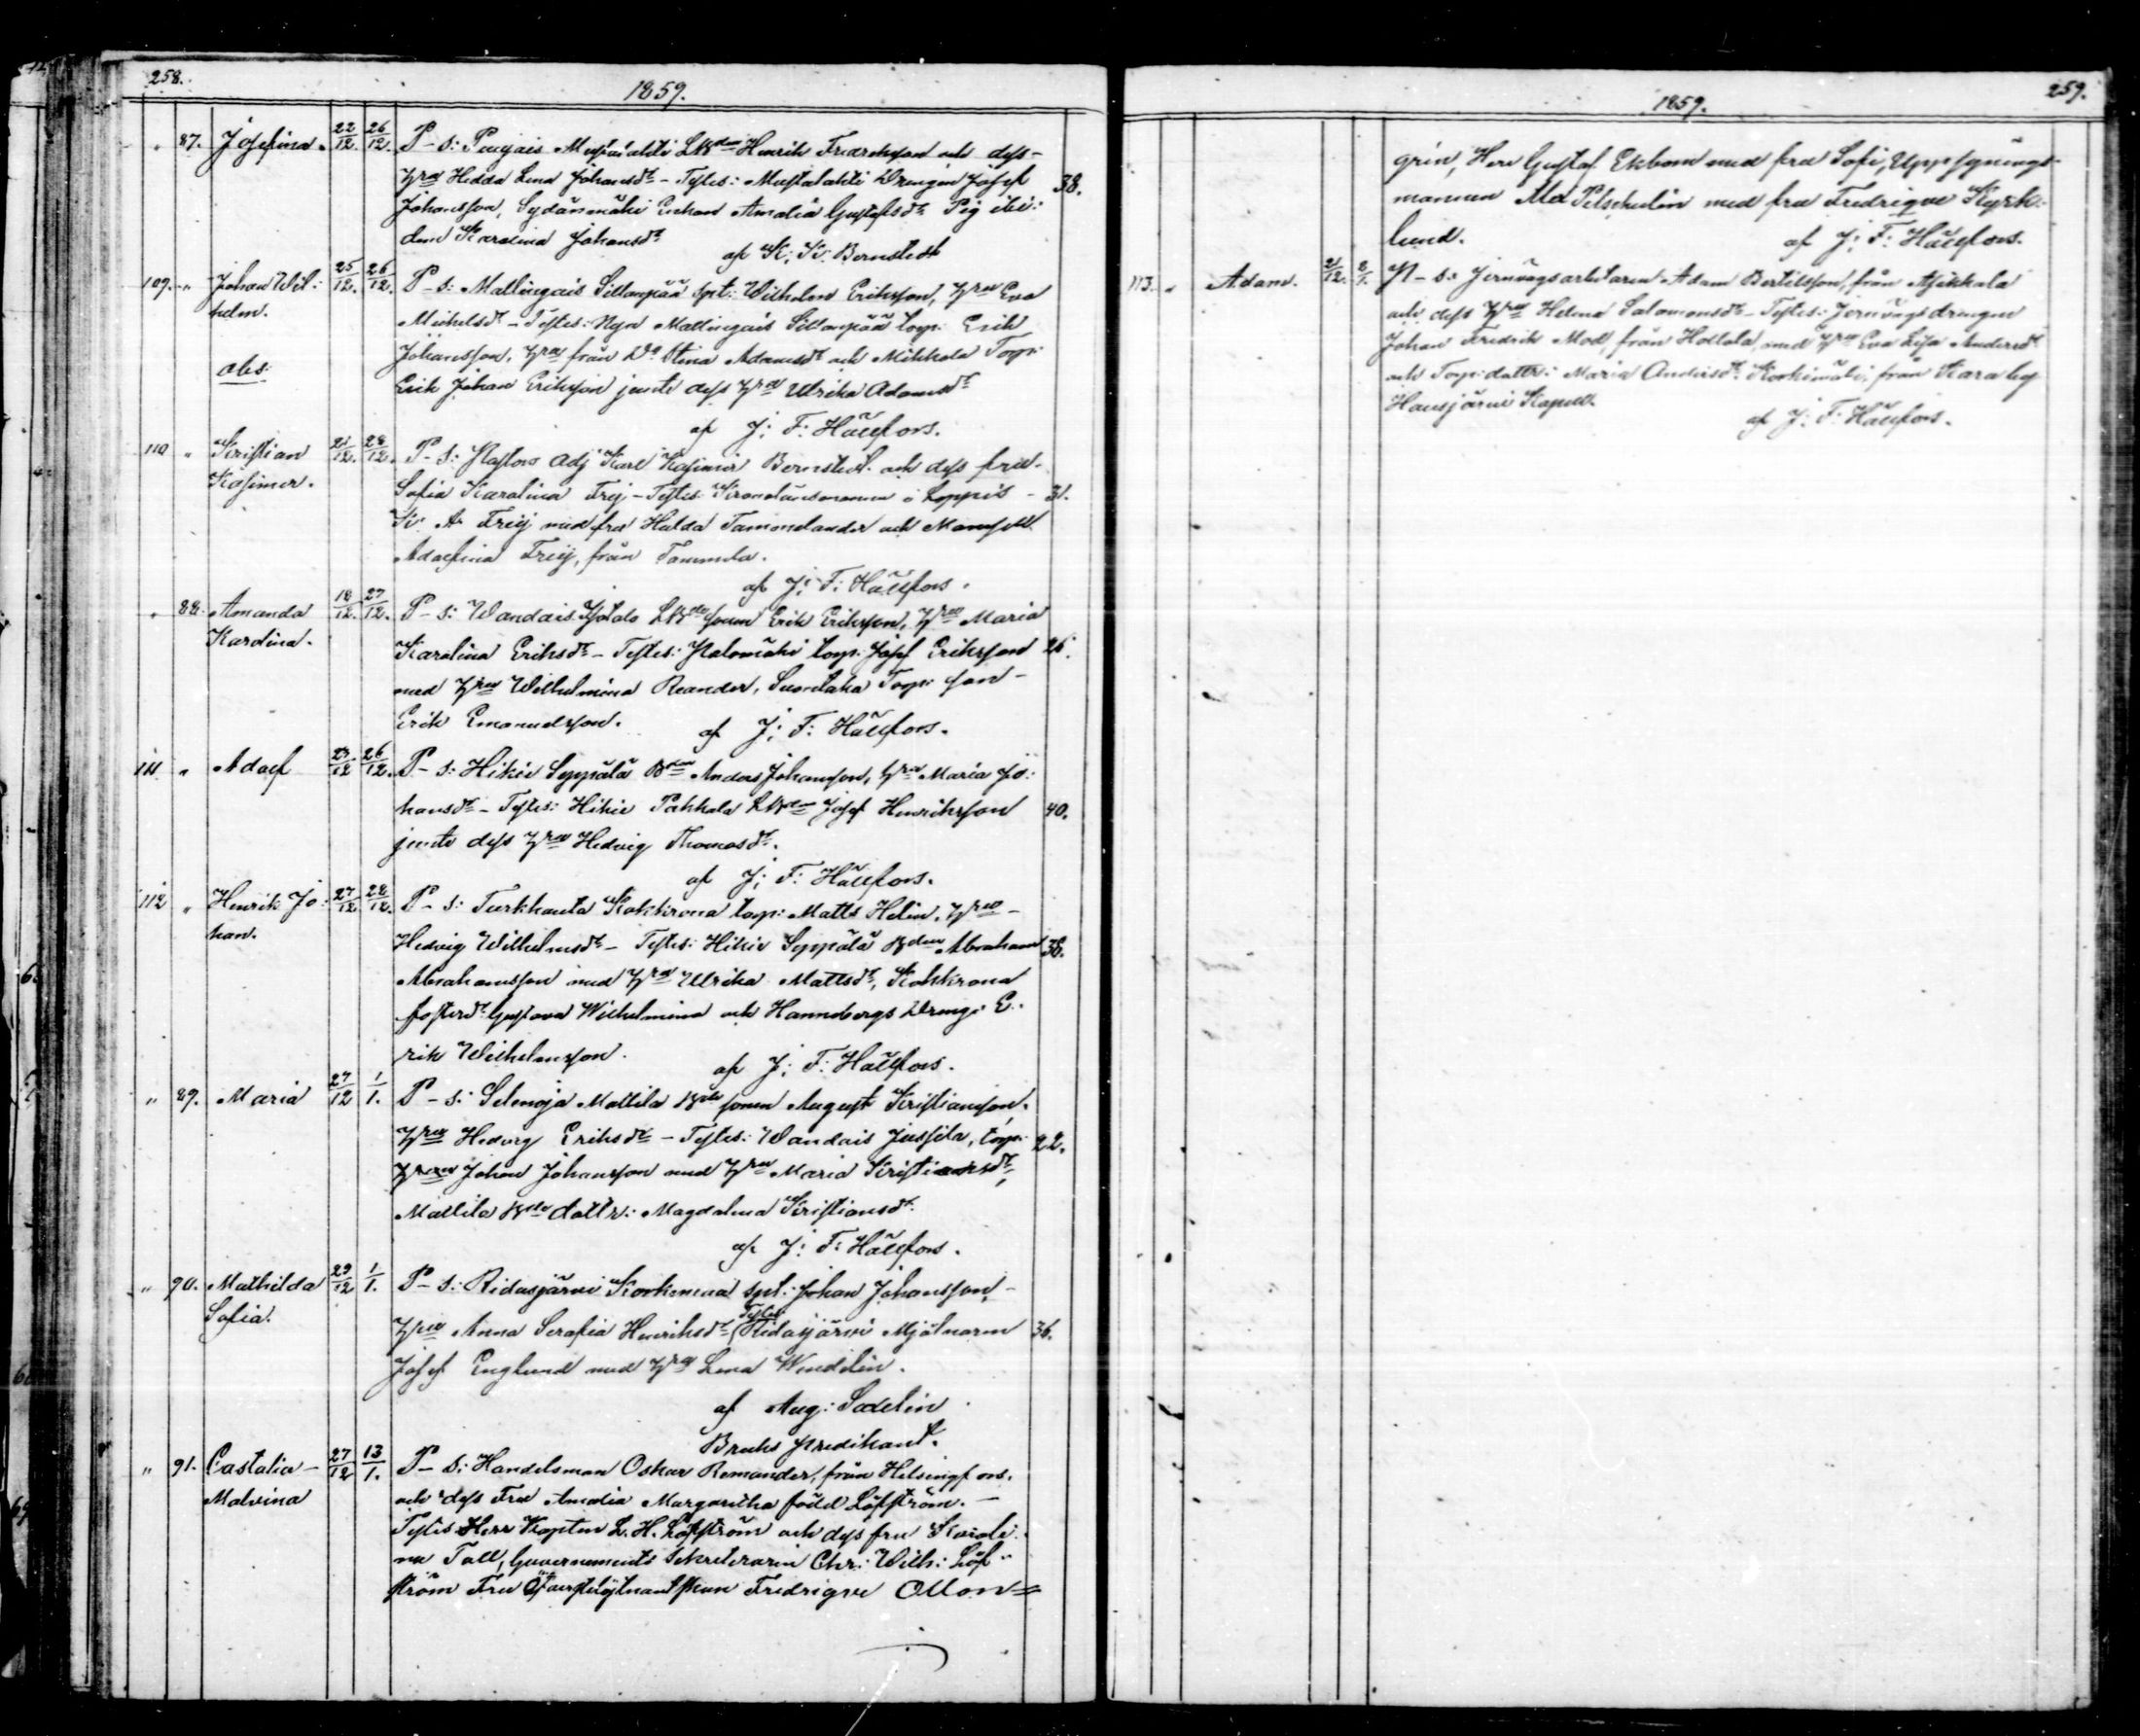 258.
1859.
" 87. Josefina. 22/12. 26/12. P-s: Mustalahti Henrik Fredriksson och dess
Hru Hedda Lena Johansdr - Testes: Mustalahti Drengen Josef 38.
Johansson, Sydänmäki Enkan Amalia Gustafsdr Pig ibi:
dem Karolina Johansdr
af K: K: Bernstedt
109. " Johan Wil: 25/12. 26/12. P-s: Mattingais Sillanpää Spt: Wilhelm Eriksson, Hru Eva
helm.
Michelsdr - Testes: Mattingais Sillanpää torp: Erik
Johansson, Hru från Do Stina Adamsdr och Mikkola Torp:
obs:
Erik Johan Eriksson jemte dess Hru Ulrika Adamsdr
af J: F: Hällfors.
110 " Kristian 21/12. 28/12. P-s: Pastors Adj Karl Kasimir Bernstedt och dess fru
Kasimir.
Sofia Karolina Frej - Testes: Kronolänsmannen i Loppis - 31.
Frej med fru Hulda Tammelander och Mamsell
Adolfina Frej, från Tammela.
af J: F: Hällfors.
" 88. Amanda 18/12. 27/12. P-s: Wandais sonen Erik Eriksson, Hru Maria
Karolina.
Karolina Eriksdr - Testes: Kalomäki torp: Josef Eriksson 26.
med Hru Wilhelmina Reander, Suontaka Torp: son -
Erik Emanuelsson.
af J: F: Hällfors.
111 " Adolf 23/12 26/12. P-s: Hikiä Seppälä Bden Anders Johansson, Hru Maria Jo:
hansdr - Testes: Hikiä Pakkala Josef Henriksson 40.
jemte dess Hru Hedvig Thomasdr.
af J: F: Hällfors.
112 " Henrik Jo: 27/12 28/12. P-s: Turkhauta Kokkrona torp: Matts Helin, Hru -
han.
Hedvig Wilhelmsdr - Testes: Hikiä Seppälä Bden Abraham 38.
Abrahamsson med Hru Ulrika Mattsdr, Kokkrona
fosterdr Gustava Wilhelmina och Hannebergs Dreng: E:
rik Wilhelmsson.
af J: F: Hällfors.
" 89. Maria 27/12 1/1. P-s: Selenoja Mattila sonen August Kristiansson,
Hru Hedvig Eriksdr - Testes: Wandais Jussila, torp: 22.
Johan Johansson med Hru Maria Kristiansdr,
Mattila dottr: Magdalena Kristiansdr.
af J: F: Hällfors.
" 90. Mathilda 29/12 1/1. P-s: Ridasjärvi Korkimaa Spt: Johan Johansson, -
Sofia.
Hru Anna Serafia Henriksdr Testes: Ridasjärvi Mjölnaren 36.
Josef Englund med Hru Lena Wendelin.
af Aug: Sadelin
Bruks predikant.
" 91. Castalia - 27/12 13/1. P-s: Handelsman Oskar Remander, från Helsingfors,
Malvina
och dess Fru Amalia Margaretha född Löfström. -
Testes Herr Kapten L. H. Löfström och dess fru Karoli:
na Tall, Guvernements Sekreteraren Chr: Wilh: Löf:
ström Fru Öfverstelöjtnantskan Fredrique Ollon=
1859.
259.
grén, Herr Gustaf Ekbom med fru Sofi, Uppsynings-
mannen Petschelin med fru Fredrique Kyrk:
lund.
af J: F: Hällfors.
113. " Adam. 21/12. 2/1. P-s: Jernvägsarbetaren Adam Bertilsson, från Asikkala
och dess Hru Helena Salomonsdr - Testes: Jernvägsdrengen
Johan Fredrik Mod, från Hollola, med Hru Eva Lisa Andersdr
och Torp:dottr: Maria Andersdr Korkimäki, från Kara by
Hausjärvi Kapell.
af J: F: Hällfors.